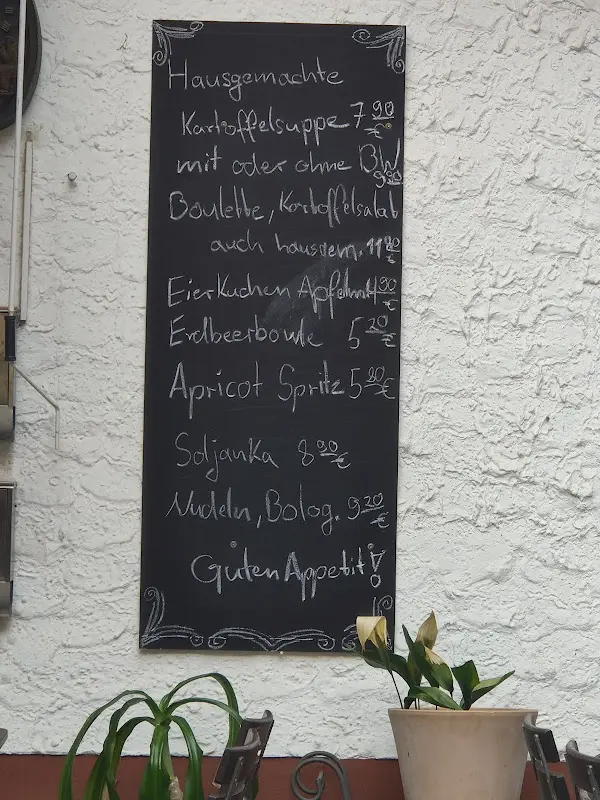 Hausgemachte
Kartoffelsuppe 7 90 €
mit oder ohne BW 9 90
Boulette, Kartoffelsalat
auch hausgem. 11 90 €
Eierkuchen Apfelmus 4 90 €
Erdbeerbowle 5 20 €
Apricot Spritz 5 80 €
Soljanka 8 90 €
Nudeln, Bolog. 9 20 €
Guten Appetit!